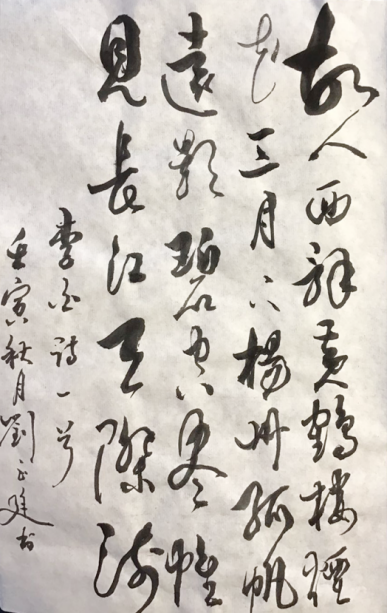 故人西辭黃鶴樓煙
花三月下楊州孤帆
遠影碧空盡惟
見長江天際流
李白詩一首
壬寅秋月劉書